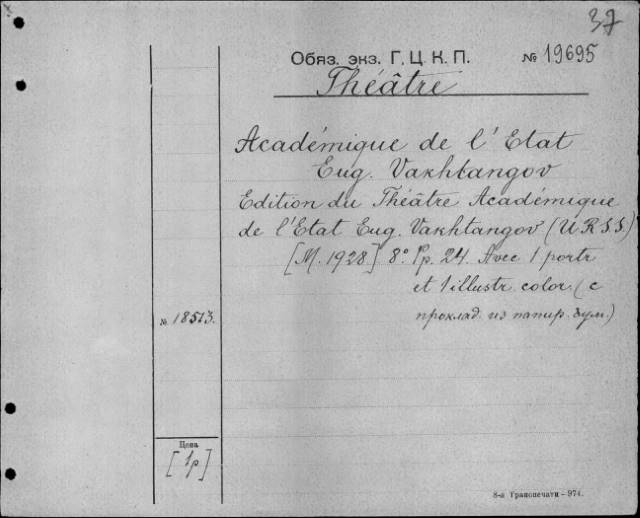 37
Обяз. экз. Г. Ц. К. П. № 19695
Théâtre
Académique de l'Etat
Eug. Vakhtangov
Edition du Théâtre Académique
de l'Etat Eug. Vakhtangov (URSS.)
[М. 1928]. 8° Pp. 24. Avec 1 portr
et 1 illustr. color. (с
№ 18513. проклад. из папир. бум.)
Цена
[1р]
8-я Транспечати — 974.